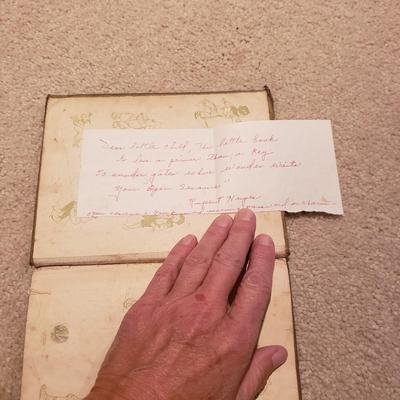 Dear little child, This little book
Is less a primer than a Key
To sunder gates where wonder waits
Your "Open Sesame"
Rupert Hughes